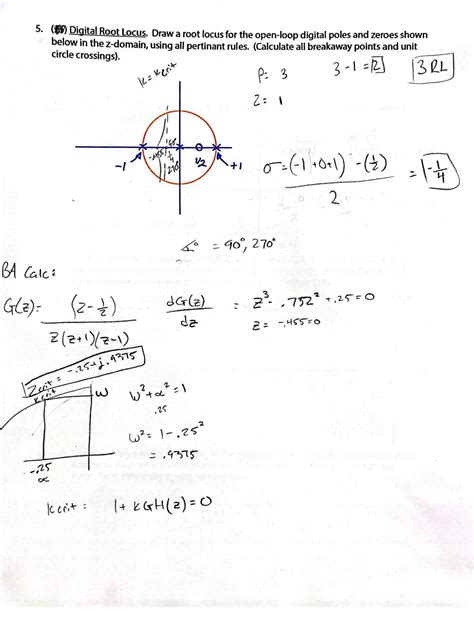 5. Digital Root Locus. Draw a root locus for the open-loop digital poles and zeroes shown
below in the z-domain, using all pertinant rules. (Calculate all breakaway points and unit
circle crossings).
P: 3
3-1=2
3RL
Z: 1
K=Kcrit
-1
-.455
1/2
+1
σ = (-1+0+1) - (1/2) / 2 = -1/4
∡° = 90°, 270°
BA Calc:
G(z) = (z - 1/2) / z(z+1)(z-1)
dG(z)/dz = z³ - .75z² + .25 = 0
z = -.455=0
Zcrit = -.25+j.9375
W
W² + α² = 1
.25
W² = 1 - .25²
= .9375
-.25
α
Kcrit = 1 + KGH(z) = 0